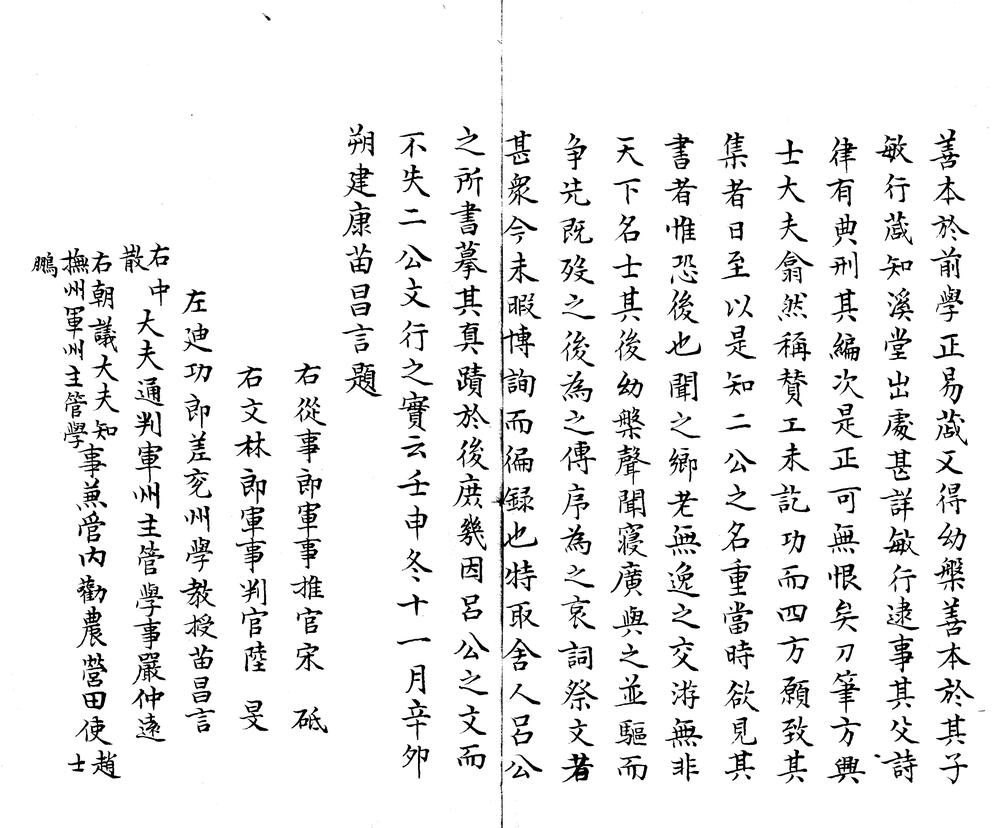 善本於前學正易蕆又得幼槃善本於其子
敏行蕆知溪堂出處甚詳敏行逮事其父詩
律有典刑其編次是正可無恨矣刀筆方興
士大夫翕然稱賛工未訖功而四方願致其
集者日至以是知二公之名重當時欲見其
書者惟恐後也聞之鄉老無逸之交游無非
天下名士其後幼槃聲聞寖廣與之並驅而
争先既歿之後為之傳序為之哀詞祭文者
甚衆今未暇博詢而徧録也特取舍人呂公
之所書摹其真蹟於後庶幾因呂公之文而
不失二公文行之實云壬申冬十一月辛夘
朔建康苗昌言題
右從事郎軍事推官宋 砥
右文林郎軍事判官陸 旻
左廸功郎差充州學教授苗昌言
右中散大夫通判軍州主管學事嚴仲遠
右朝議大夫知撫州軍州主管學事兼管内勸農營田使趙士鵬